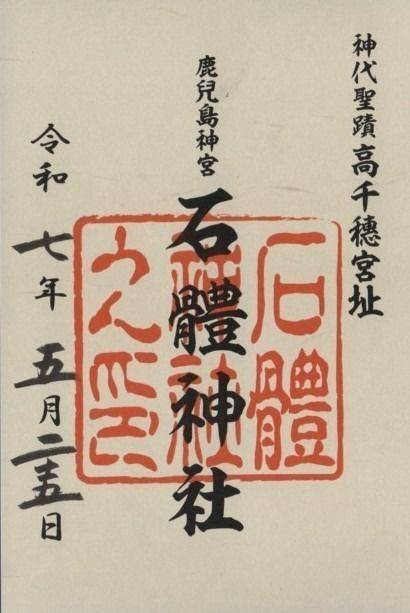 神代聖蹟高千穂宮址
鹿兒島神宮
石體神社
令和七年五月二十五日
石體
神社